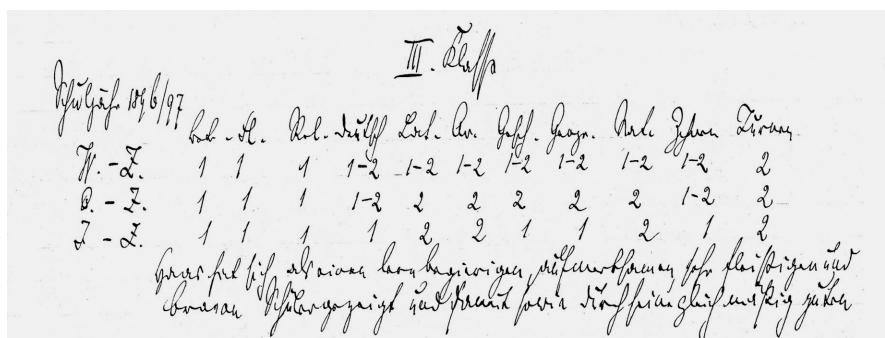 III. Klasse
Schuljahr 1896/97
Bet. - Fl. Rel. Deutsch Lat. Ar. Gesch. Geogr. Nat. Zeichn. Turnen
W. - Z. 1 1 1 1-2 1-2 1-2 1-2 1-2 1-2 1-2 2
O. - Z. 1 1 1 1-2 2 2 2 2 2 1-2 2
J - Z. 1 1 1 1 2 2 1 1 2 1 2
Haas hat sich als einen lernbegierigen, aufmerksamen sehr fleißigen und
braven Schüler gezeigt und damit sowie durch seine gleichmäßig guten